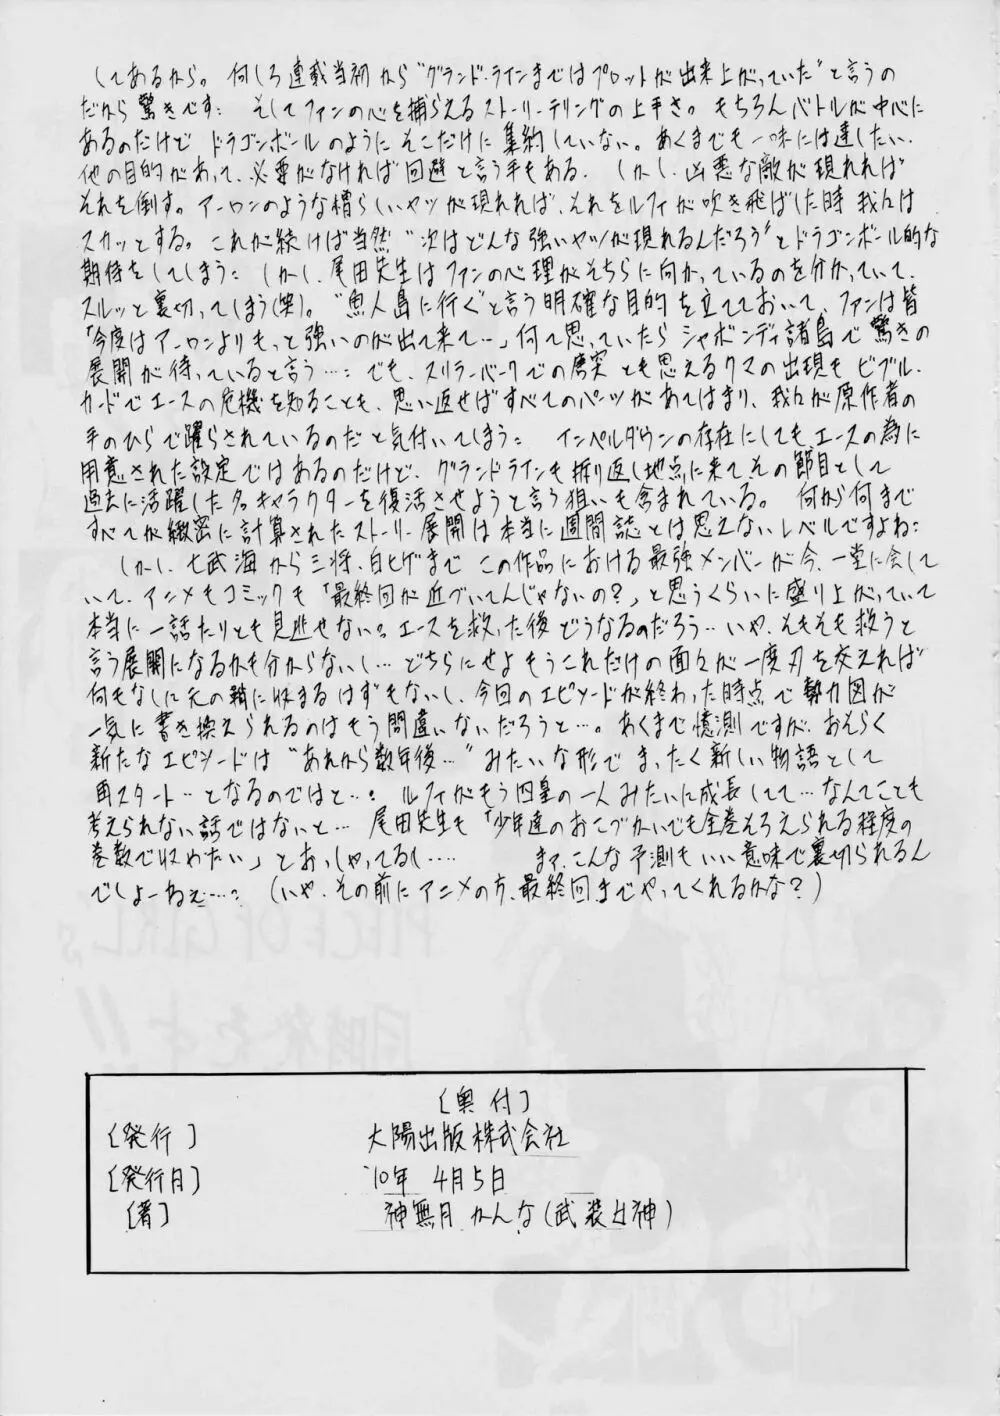 してあるから。何しろ連載当初から“グランド・ラインまではプロットが出来上がっていた”と言うの
だから驚きです: そしてファンの心を捕らえるストーリーテリングの上手さ。もちろんバトルが中心に
あるのだけどドラゴンボールのようにそこだけに集約していない。あくまでも一味には達したい、
他の目的があって、必要がなければ回避と言う手もある. しかし、凶悪な敵が現れれば
それを倒す。アーロンのような憎らしいヤツが現れれば、それをルフィが吹き飛ばした時我々は
スカッとする。これが続けば当然“次はどんな強いヤツが現れるんだろう”とドラゴンボール的な
期待をしてしまう: しかし、尾田先生はファンの心理がそちらに向かっているのを分かっていて、
スルッと裏切ってしまう(笑)。“魚人島に行く”と言う明確な目的を立てておいて、ファンは皆
「今度はアーロンよりもっと強いのが出て来て…」何て思っていたらシャボンディ諸島で驚きの
展開が待っていると言う…: でも、スリラーバークでの唐突とも思えるクマの出現もビブル・
カードでエースの危機を知ることも、思い返せばすべてのパーツがあてはまり、我々が原作者の
手のひらで躍らされているのだと気付いてしまう: インペルダウンの存在にしても、エースの為に
用意された設定ではあるのだけど、グランドラインも折り返し地点に来てその節目として
過去に活躍した名キャラクターを復活させようと言う狙いも含まれている。何から何まで
すべてが緻密に計算されたストーリー展開は本当に週間誌とは思えないレベルですよね:
しかし、七武海から三将、白ヒゲまでこの作品における最強メンバーが今、一堂に会して
いて、アニメもコミックも「最終回が近づいてんじゃないの?」と思うくらいに盛り上がっていて
本当に一話たりとも見逃せない。エースを救った後どうなるのだろう‥いや、そもそも救うと
言う展開になるかも分からないし…どちらにせよもうこれだけの面々が一度刃を交えれば
何もなしに元の鞘に収まるはずもないし、今回のエピソードが終わった時点で勢力図が
一気に書き換えられるのはもう間違いないだろうと…。あくまで憶測ですが、おそらく
新たなエピソードは“あれから数年後…”みたいな形でまったく新しい物語として
再スタート…となるのではと…: ルフィがもう四皇の一人みたいに成長してて…なんてことも
考えられない話ではないと… 尾田先生も「少年達のおこづかいでも全巻そろえられる程度の
巻数で収めたい」とおっしゃってるし…. まァ、こんな予測もいい意味で裏切られるん
でしょーねぇ…: (いや、その前にアニメの方、最終回までやってくれるかな?)
PIECE OF GIRLs
同時発売です!!
〔奥付〕
〔発行〕 大陽出版株式会社
〔発行日〕 '10年 4月5日
〔著〕 神無月かんな(武装女神)